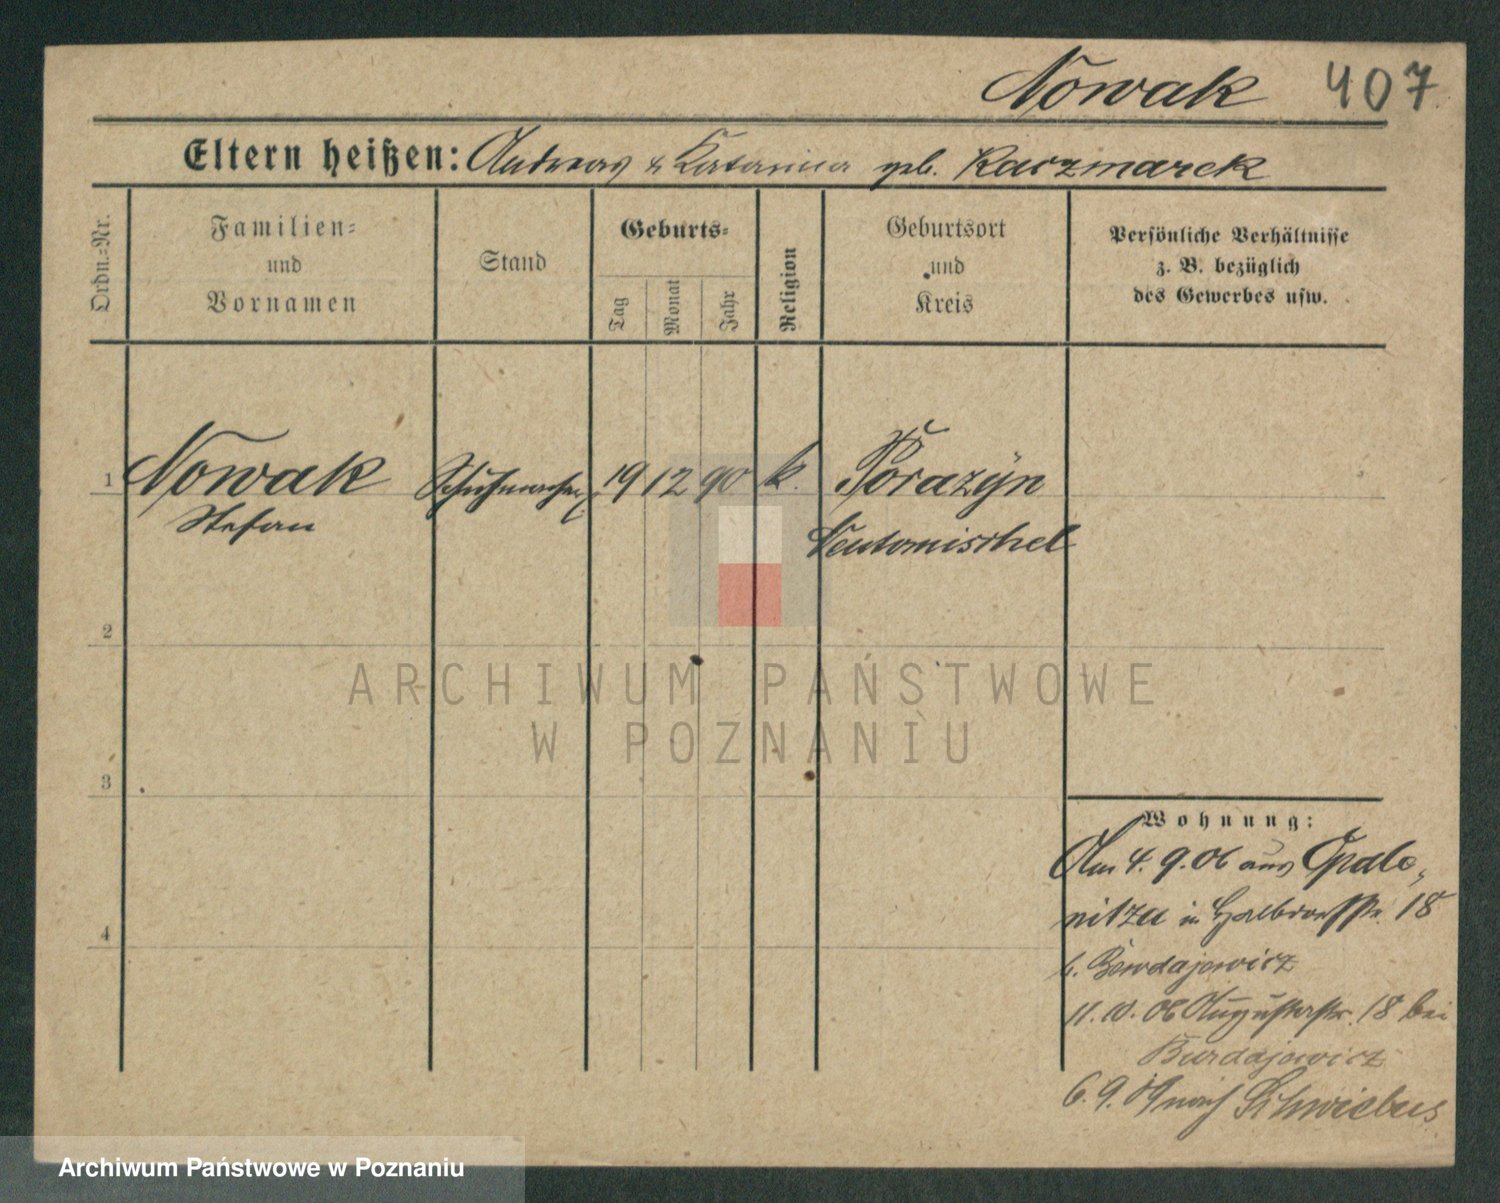 Nowak 407
Eltern heißen: Andreas & Katarina geb. Kaczmarek
Ordn.=Nr.
Familien=
und
Vornamen
Stand
Geburts=
Tag
Monat
Jahr
Religion
Geburtsort
und
Kreis
Persönliche Verhältnisse
z. B. bezüglich
des Gewerbes usw.
1 Nowak Schuhmacher 19 12 90 k. Porazÿn
Stefan Neutomischel
2
3
4
Wohnung:
Am 4.9.06 aus Opale=
nitza in 18
b. Burdajewicz
11.10.06 Augustastr. 18 bei
Burdajewicz
6.9. nach Schwiebus
ARCHIWUM PAŃSTWOWE
W POZNANIU
Archiwum Państwowe w Poznaniu